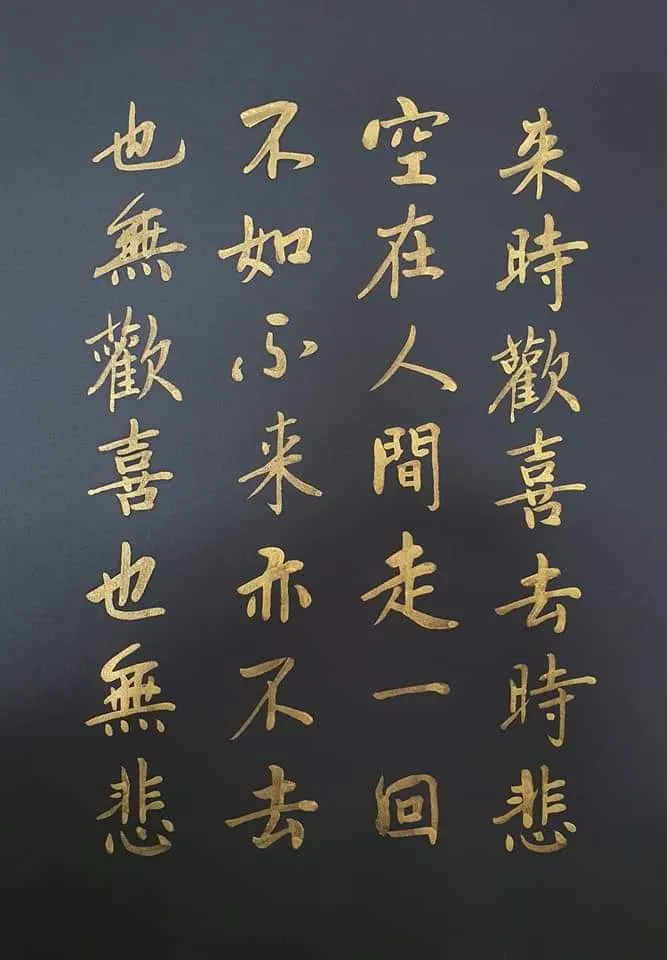 来時歡喜去時悲
空在人間走一回
不如不来亦不去
也無歡喜也無悲